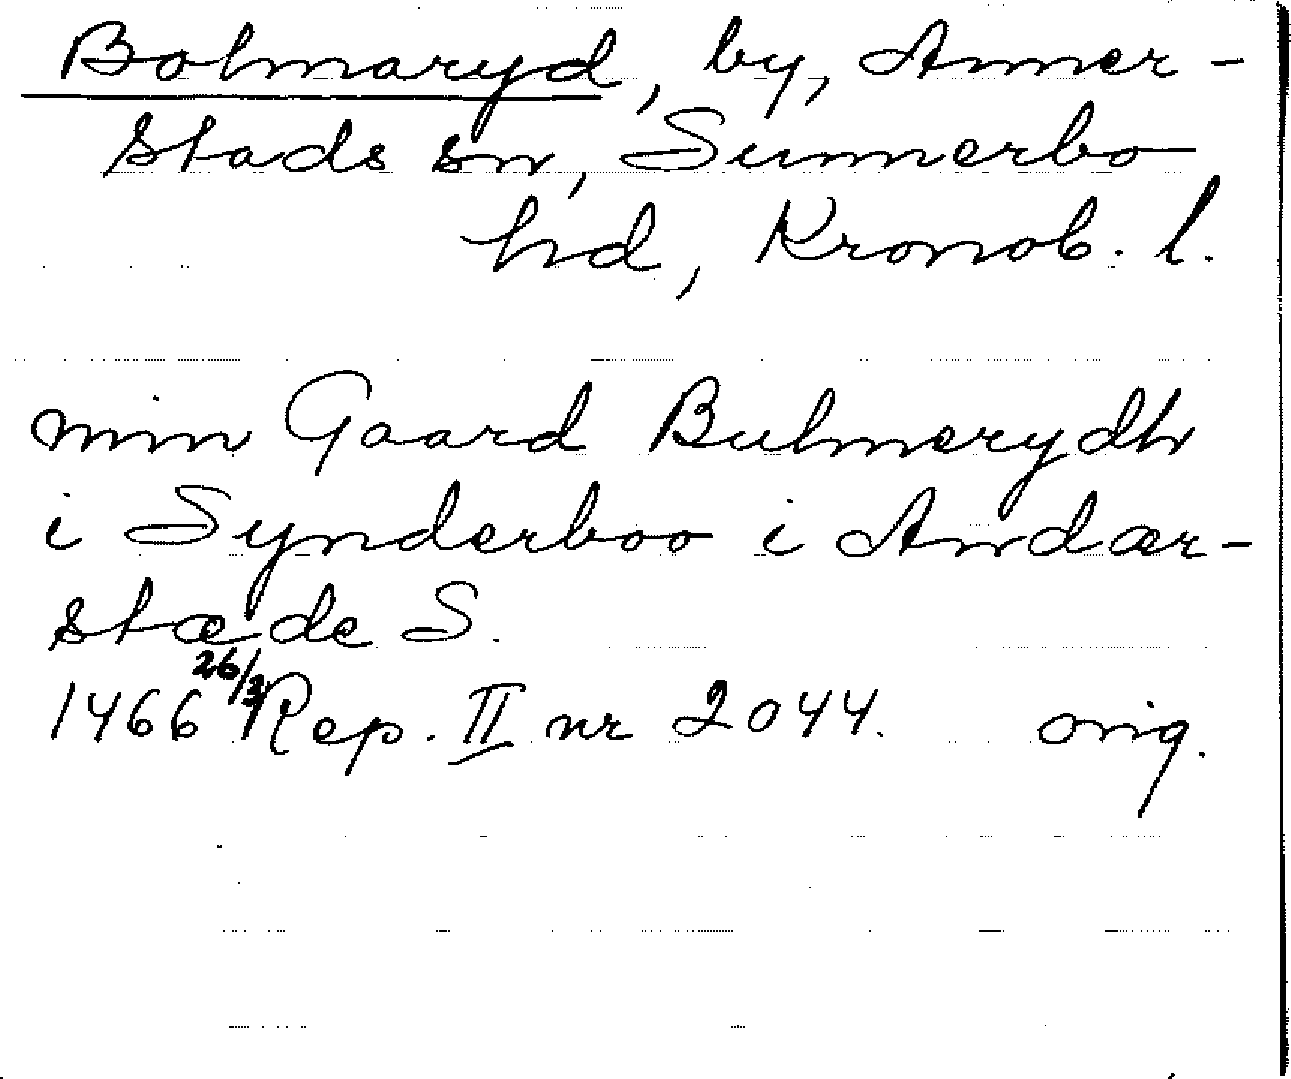 Bolmaryd, by, Anner-
stads sn, Sunnerbo
hd, Kronob. l.
min Gaard Bulmerydh
i Synderboo i Andær-
stæde S.
1466 26/3 Rep. II nr 2044. orig.